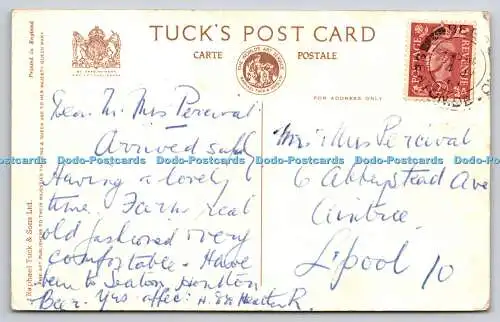 TUCK'S POST CARD
CARTE POSTALE
FOR ADDRESS ONLY
Printed in England
Raphael Tuck & Sons Ltd.
ART PUBLISHERS TO THEIR MAJESTIES THE KING & QUEEN AND TO HER MAJESTY QUEEN MARY
POSTAGE REVENUE
Dear Mr Mrs Percival
Arrived safely
Having a lovely
time. Farm real
old fashioned & very
comfortable. Have
been to Seaton, Honiton
Beer. Yrs affec:
Mr & Mrs Percival
6 Abbeystead Ave
Aintree
L'pool 10
Dodo-Postcards Dodo-Postcards Dodo-Postcards Dodo-Postcards Dodo-Postcards Dodo-Postcards